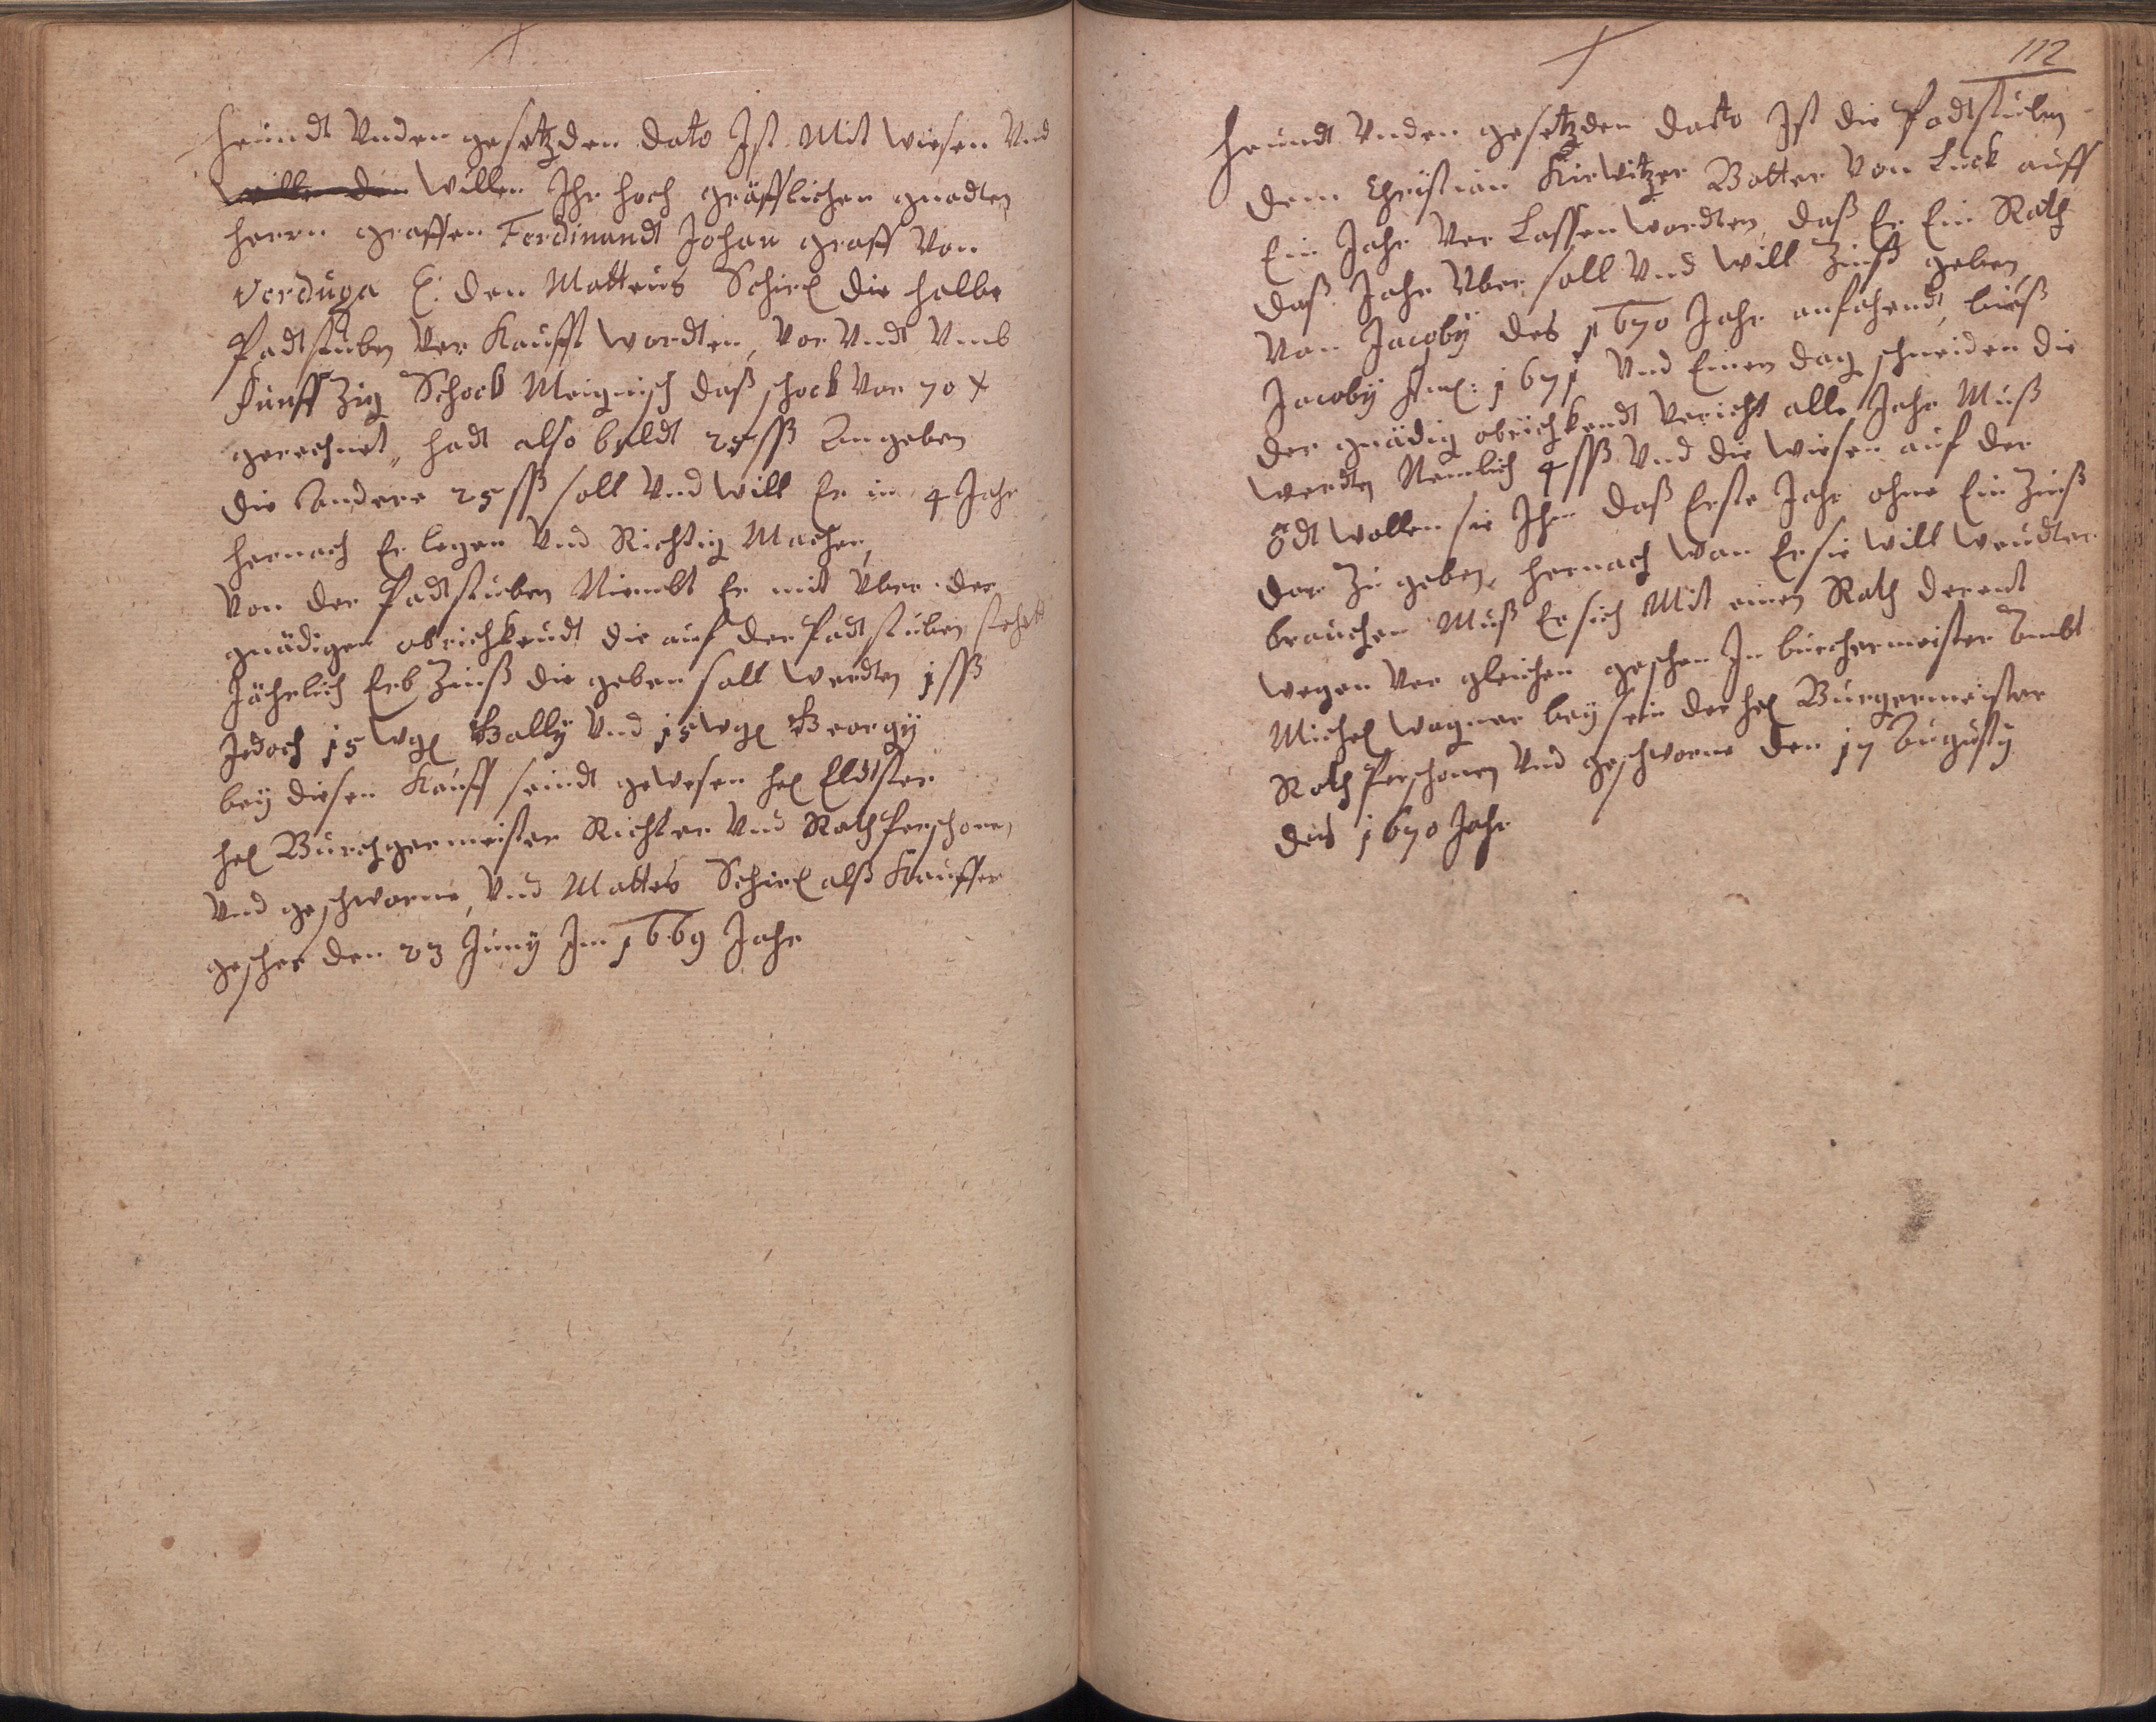 Heundt Unden gesetzden dato Ist Mit wiesen Und
wille den willen Ihr hoch gräfflichen gnadten
herrn graffen Ferdinandt Johan graff von
Verduga E: den Matteus Schirl die halbe
Padtstuben Ver Kaufft wordten, vor Undt Umb
Funff Zig Schock Meignisch daß schock vor 70 x
gerechnet, hadt also baldt 25 ßß Angeben
die Andere 25 ßß soll Und will Er in 4 Jahr
hernach Er legen Und Richtig Machen,
Von der Padtstuben Niembt Er mit Über der
gnädigen obrichkeudt die auf der Padtstuben stehet
Jährlich Erb Zinß die geben soll werdten 1 ßß
Jedoch 15 wgl Gally Und 15 wgl Georgy
bey diesen Kauff seindt gewesen hl Eldtster
hl Burchgermeister Richter Und Rath Perschonen
Und geschworne, Und Mattes Schirl alß Kauffer
gescher den 23 Juny Im 1669 Jahr
112
Heundt Unden gesetzden datto Ist die Padtstuben
dem Christian Kirwitzer Botter Von Luck auff
Ein Jahr Ver Lassen wordten, daß Er Ein Rath
daß Jahr Uber soll Und will Zinß geben,
Von Jacoby des 1670 Jahr anfahendt, bieß
Jacoby 1671 Und Einen dag schneiden die
der gnädig obrichkendt Vericht alle Jahr Muß
werdten Nemlich 4 ßß Und die wiesen auf der
Ödt wollen sie Ihm daß Erste Jahr ohne Ein Zinß
dar Zu geben, hernach wan Er sie will
brauchen Muß Er sich Mit einen Rath derent
wegen Ver gleichen geschen In burchermeister Ambt
Michel wagner bey sein der hl Burgermeister
Rath Perschonen Und geschworne den 17 Augusty
des 1670 Jahr